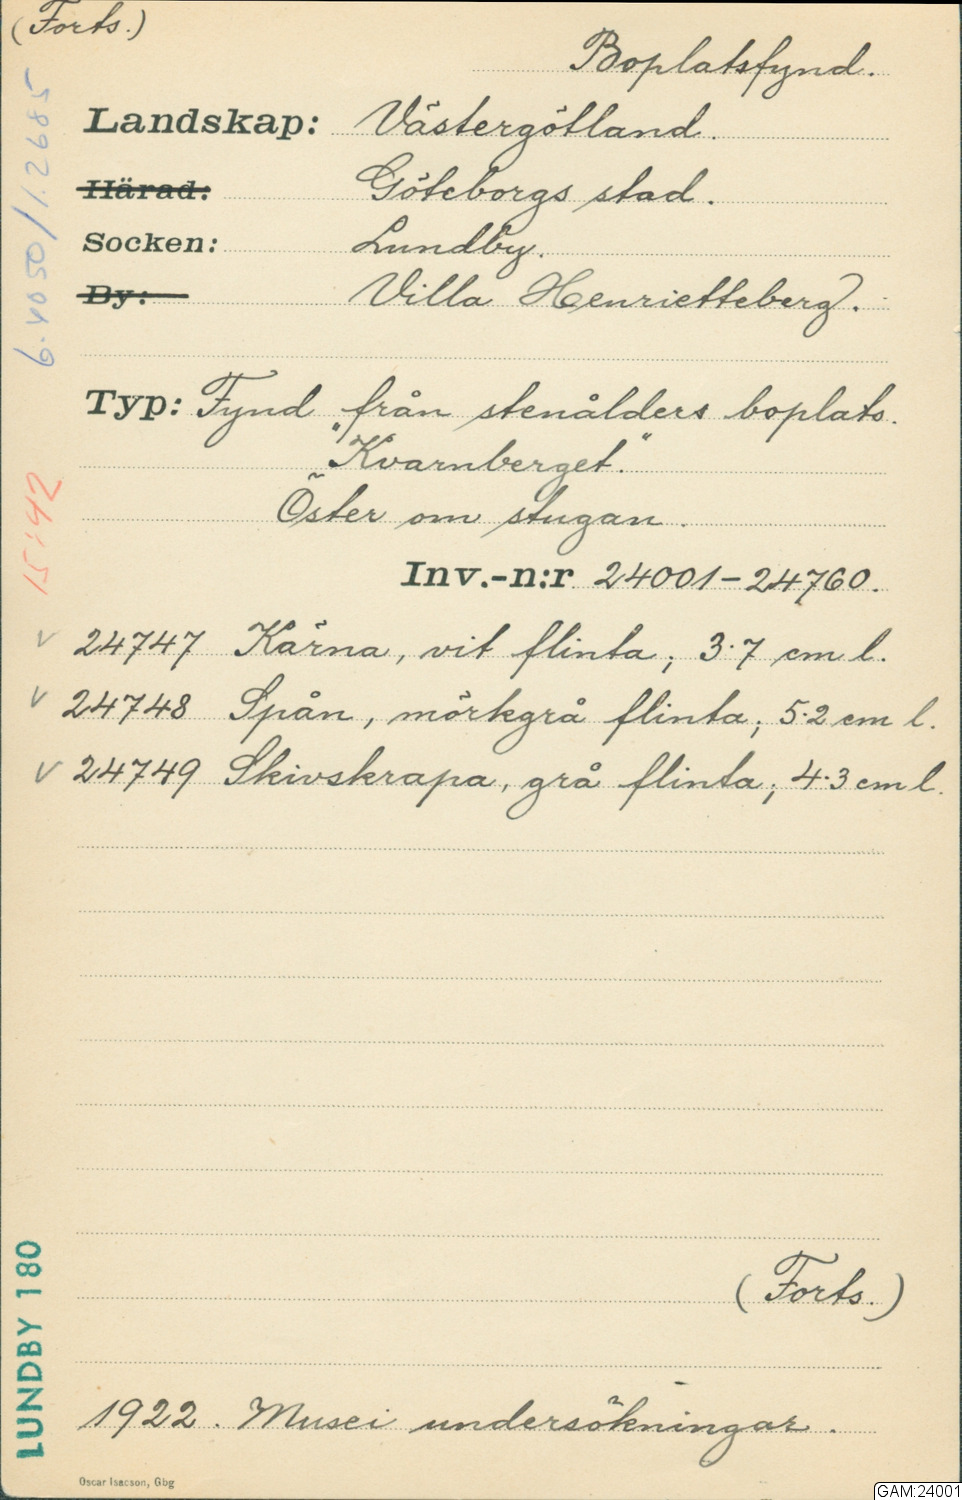 (Forts.)
Boplatsfynd.
Landskap: Västergötland.
Härad: Göteborgs stad.
Socken: Lundby.
By: Villa Henrietteberg.
Typ: Fynd från stenålders boplats.
"Kvarnberget."
Öster om stugan.
Inv.-n:r 24001-24760.
v 24747 Kärna, vit flinta; 3.7 cm l.
v 24748 Spån, mörkgrå flinta; 5.2 cm l.
v 24749 Skivskrapa, grå flinta; 4.3 cm l.
(Forts.)
1922. Musei undersökningar.
Oscar Isacson, Gbg
6.4050/1.2685
15:42
LUNDBY 180
GAM:24001